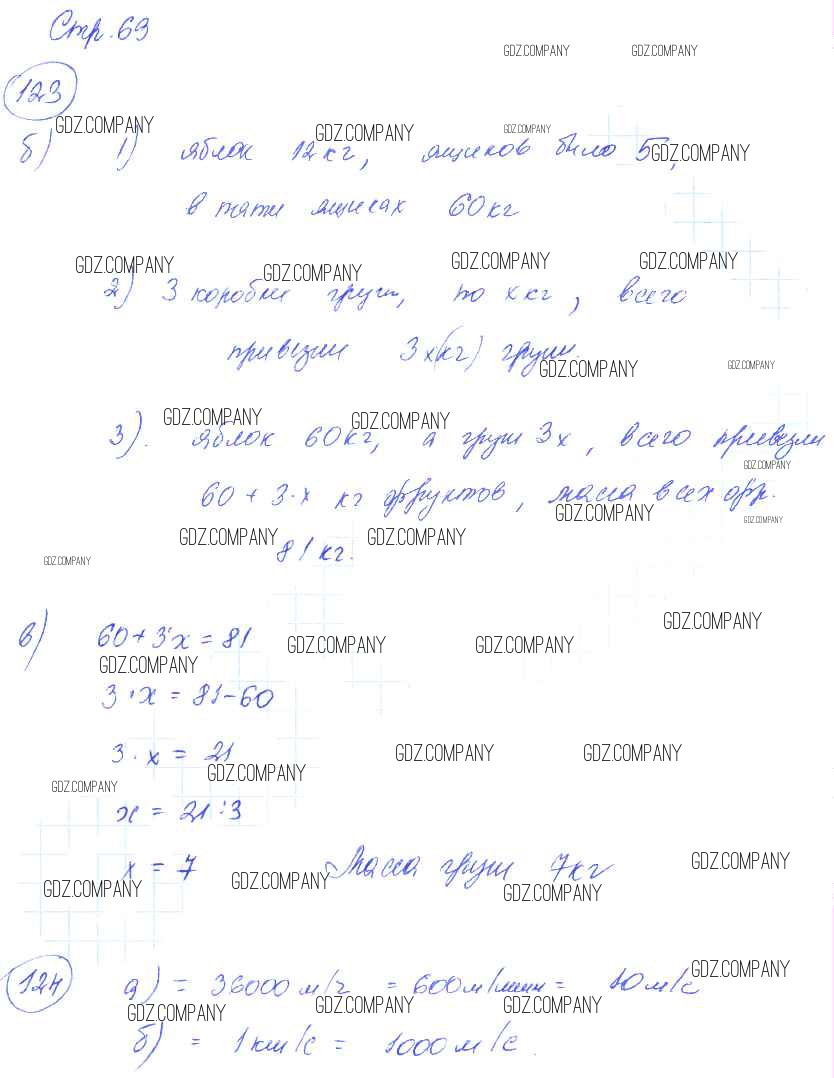 Стр. 69
GDZ.COMPANY GDZ.COMPANY
123
GDZ.COMPANY GDZ.COMPANY GDZ.COMPANY GDZ.COMPANY
б) 1) яблок 12 кг, ящиков было 5,
в пяти ящиках 60 кг
GDZ.COMPANY GDZ.COMPANY GDZ.COMPANY GDZ.COMPANY
2) 3 коробки груш, по x кг, всего
привезли 3x(кг) груш.
GDZ.COMPANY GDZ.COMPANY
GDZ.COMPANY GDZ.COMPANY
3). яблок 60 кг, а груш 3x, всего привезли
GDZ.COMPANY
60 + 3·x кг фруктов, масса всех фр.
GDZ.COMPANY GDZ.COMPANY
GDZ.COMPANY GDZ.COMPANY
81 кг.
GDZ.COMPANY
GDZ.COMPANY
в) 60 + 3·x = 81
GDZ.COMPANY GDZ.COMPANY
GDZ.COMPANY
3·x = 81-60
3·x = 21
GDZ.COMPANY GDZ.COMPANY
GDZ.COMPANY
GDZ.COMPANY
x = 21:3
x = 7 Масса груш 7 кг
GDZ.COMPANY
GDZ.COMPANY GDZ.COMPANY GDZ.COMPANY
124 а) = 36000 м/ч = 600 м/мин = 10 м/с
GDZ.COMPANY
GDZ.COMPANY GDZ.COMPANY GDZ.COMPANY
б) = 1 км/с = 1000 м/с.